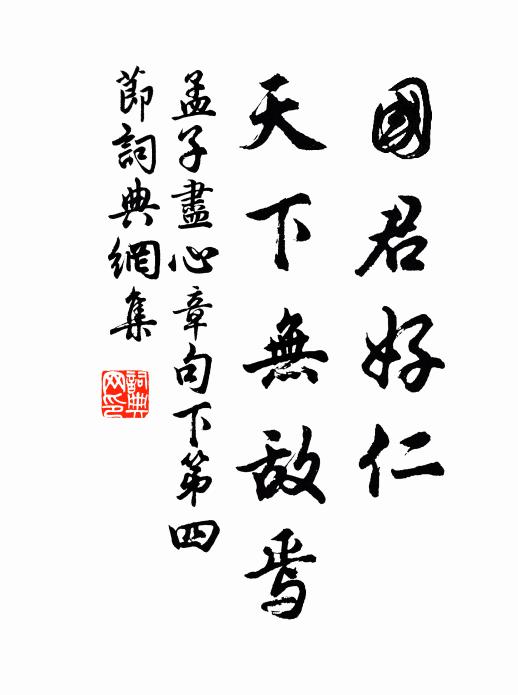 國君好仁
天下無敵焉
孟子盡心章句下第四
節詞典網集
詞典
网印